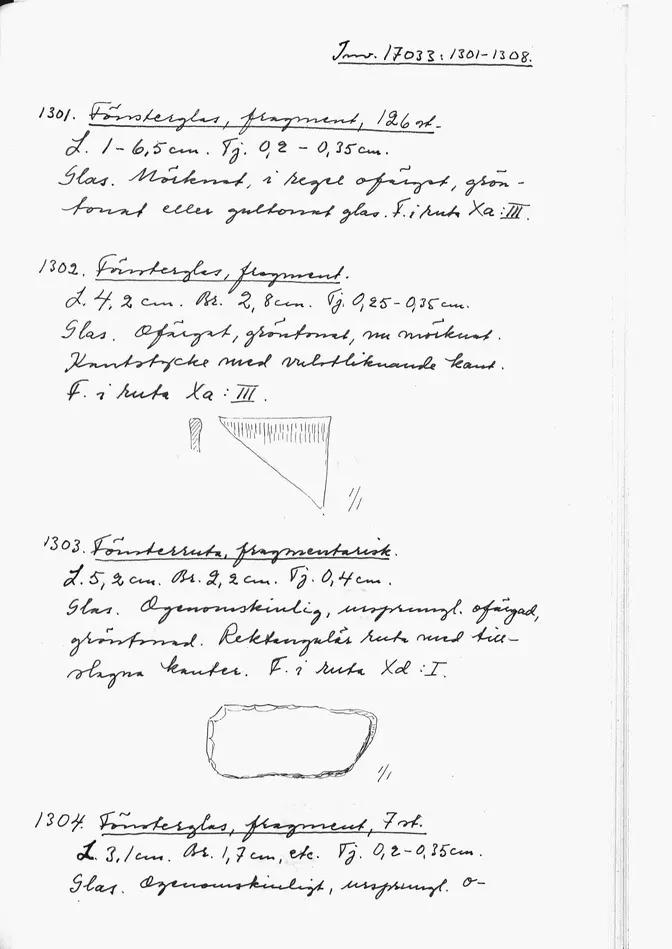 Inv. 17033:1301-1308.
1301. Fönsterglas, fragment, 126 st.
L. 1-6,5cm. Tj. 0,2-0,35cm.
Glas. Mörknat, i regel ofärgat, grön-
tonat eller gultonat glas. F. i ruta Xa:III.
1302. Fönsterglas, fragment.
L. 4,2cm. Br. 2,8cm. Tj. 0,25-0,35cm.
Glas. Ofärgat, gröntonat, nu mörknat.
Kantstycke med vulstliknande kant.
F. i ruta Xa:III.
1/1
1303. Fönsterruta, fragmentarisk.
L. 5,2cm. Br. 2,2cm. Tj. 0,4cm.
Glas. Ogenomskinlig, ursprungl. ofärgad,
gröntonad. Rektangulär ruta med till-
slagna kanter. F. i ruta Xd:I.
1/1
1304. Fönsterglas, fragment, 7 st.
L. 3,1cm. Br. 1,7cm, etc. Tj. 0,2-0,35cm.
Glas. Ogenomskinligt, ursprungl. o-